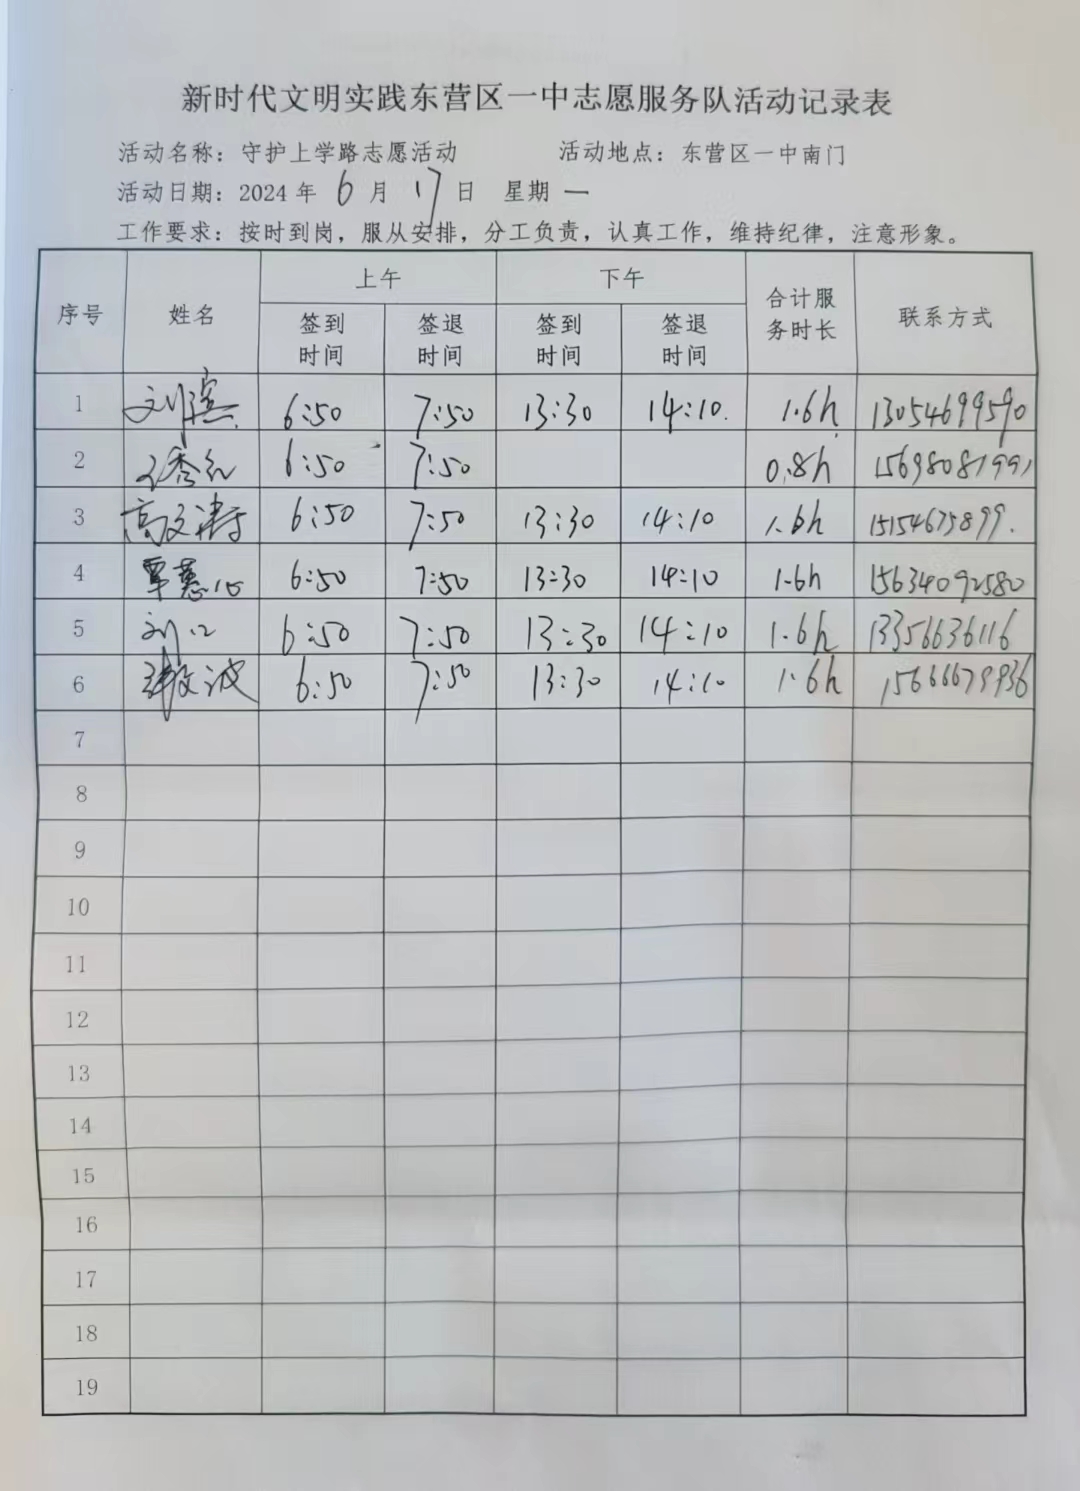 新时代文明实践东营区一中志愿服务队活动记录表
活动名称：守护上学路志愿活动 活动地点：东营区一中南门
活动日期：2024 年 6 月 17 日 星期 一
工作要求：按时到岗，服从安排，分工负责，认真工作，维持纪律，注意形象。
序号 姓名 上午 下午 合计服务时长 联系方式
签到时间 签退时间 签到时间 签退时间
1 刘 6:50 7:50 13:30 14:10. 1.6h 13054699590
2 秀红 6:50 7:50 0.8h
3 高文涛 6:50 7:50 13:30 14:10 1.6h 15154675899.
4 覃慧 6:50 7:50 13:30 14:10 1.6h 15634092580
5 刘 6:50 7:50 13:30 14:10 1.6h 13356636116
6 波 6:50 7:50 13:30 14:10 1.6h
7
8
9
10
11
12
13
14
15
16
17
18
19